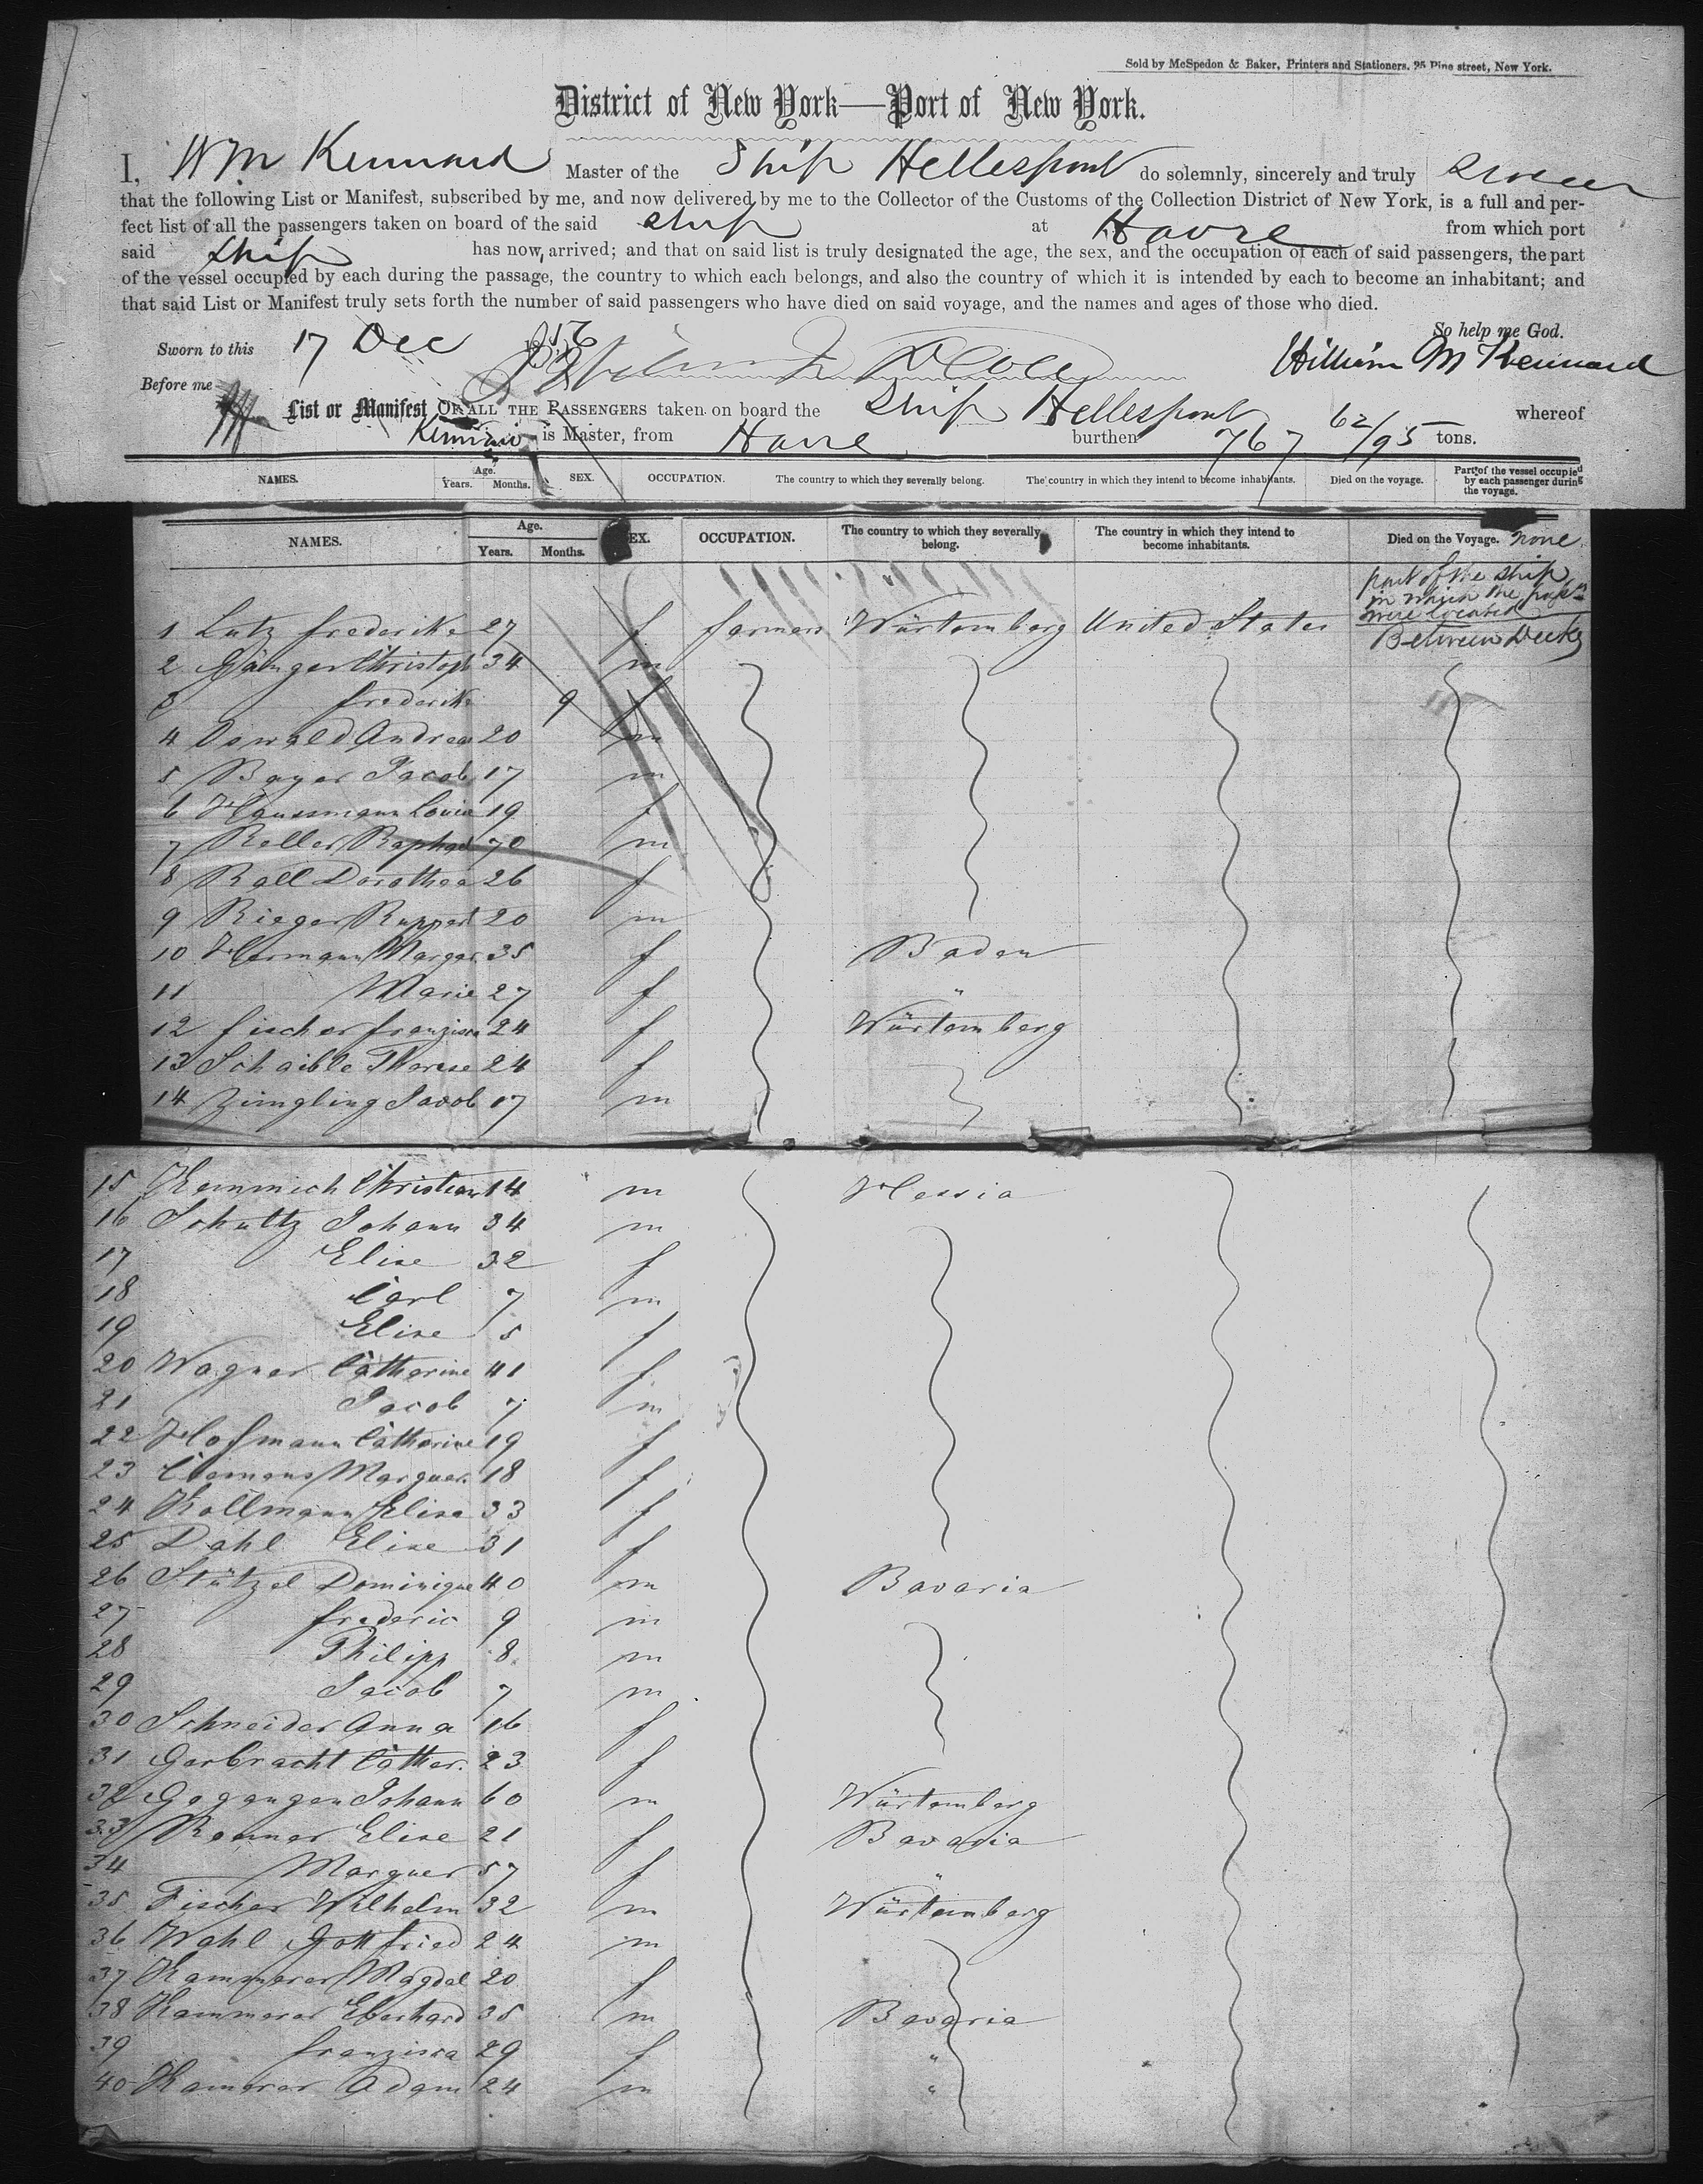 Sold by McSpedon & Baker, Printers and Stationers, 25 Pine street, New York.
District of New York—Port of New York.
I, Wm Kennard Master of the Ship Hellespont do solemnly, sincerely and truly swear
that the following List or Manifest, subscribed by me, and now delivered by me to the Collector of the Customs of the Collection District of New York, is a full and per-
fect list of all the passengers taken on board of the said ship at Havre from which port
said ship has now arrived; and that on said list is truly designated the age, the sex, and the occupation of each of said passengers, the part
of the vessel occupied by each during the passage, the country to which each belongs, and also the country of which it is intended by each to become an inhabitant; and
that said List or Manifest truly sets forth the number of said passengers who have died on said voyage, and the names and ages of those who died.
So help me God.
Sworn to this 17 Dec 1856
William M Kennard
Before me
List or Manifest OF ALL THE PASSENGERS taken on board the Ship Hellespont whereof
Kennard is Master, from Havre burthen 767 62/95 tons.
NAMES. Age. Years. Months. SEX. OCCUPATION. The country to which they severally belong. The country in which they intend to become inhabitants. Died on the voyage. Part of the vessel occupied by each passenger during the voyage.
NAMES. Age. Years. Months. SEX. OCCUPATION. The country to which they severally belong. The country in which they intend to become inhabitants. Died on the Voyage. none
part of the ship
in which the
were located
1 Lutz frederike 27 f farmers Würtemberg United States Between Decks
2 Gänger Christoph 34 m
3 frederik 9 f
4 Oswald Andreas 20 m
5 Bayer Jacob 17 m
6 Haussmann Louise 19 f
7 Keller Raphael 70 m
8 Rall Dorothea 26 f
9 Rieger Ruppert 20 m
10 Hermann Margar. 35 f Baden
11 Marie 27 f "
12 fischer franzisca 24 f Würtemberg
13 Schaible Therese 24 f
14 Zimgling Jacob 17 m
15 Hemmich Christian 14 m Hessia
16 Schultz Johann 34 m
17 Elise 32 f
18 Carl 7 m
19 Elise 5 f
20 Wagner Catherine 41 f
21 Jacob 7 m
22 Hofmann Catherine 19 f
23 Clemens Marguer. 18 f
24 Kollmann Elise 33 f
25 Dahl Elise 31 f
26 Stützel Dominique 40 m Bavaria
27 frederic 9 m
28 Philipp 8 m
29 Jacob 7 m
30 Schneider Anna 16 f
31 Gerbracht Cather. 23 f
32 Gegangen Johann 60 m Würtemberg
33 Renner Elise 21 f Bavaria
34 Marguer 57 f "
35 Fischer Wilhelm 32 m Würtemberg
36 Wahl Gottfried 24 m
37 Kammerer Magdal 20 f
38 Kammerer Eberhard 35 m Bavaria
39 franzisca 29 f "
40 Kamerer Adam 24 m "